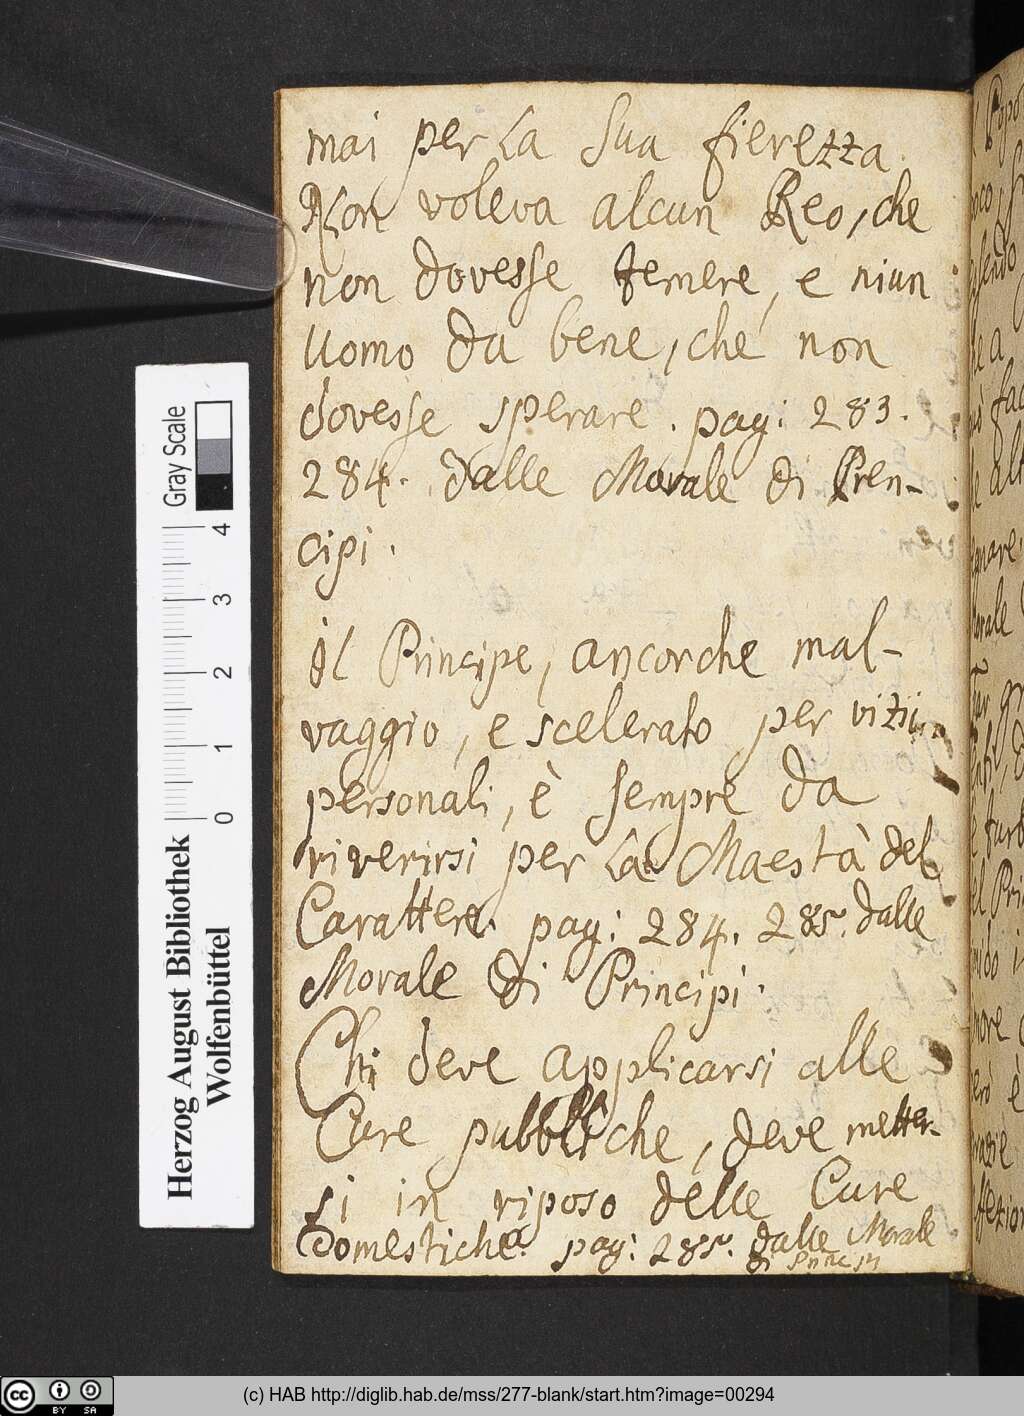 mai per La sua fierezza.
Non voleva alcun Reo, che
non dovesse temere, e niun
Uomo da bene, che non
dovesse sperare. pag: 283.
284. dalle Morale di Pren-
cipi.
il Principe, ancorche mal-
vaggio, e scelerato per vizii
personali, è sempre da
riverirsi per La Maestà del
Carattere. pag: 284. 285. dalle
Morale di Principi.
Chi deve applicarsi alle
Cure pubbliche, deve metter-
si in riposo delle Cure
domestiche. pag: 285. dalle Morale
di Principi
Gray Scale
4
3
2
1
0
Herzog August Bibliothek
Wolfenbüttel
cc BY SA
(c) HAB http://diglib.hab.de/mss/277-blank/start.htm?image=00294